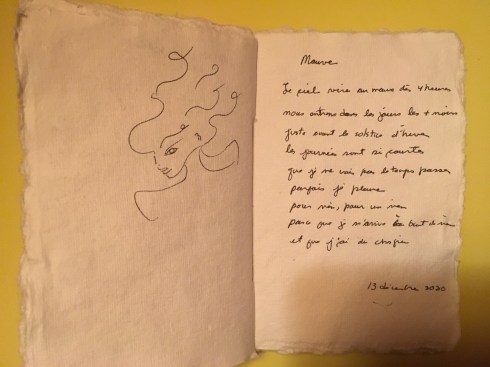 Mauve
Le ciel vire au mauve dès 4 heures
nous entrons dans les jours les + noirs
juste avant le solstice d'hiver
les journées sont si courtes
que je ne vois pas le temps passer
parfois je pleure
pour rien, pour un rien
parce que je n'arrive à bout de rien
et que j'ai du chagrin
13 décembre 2020